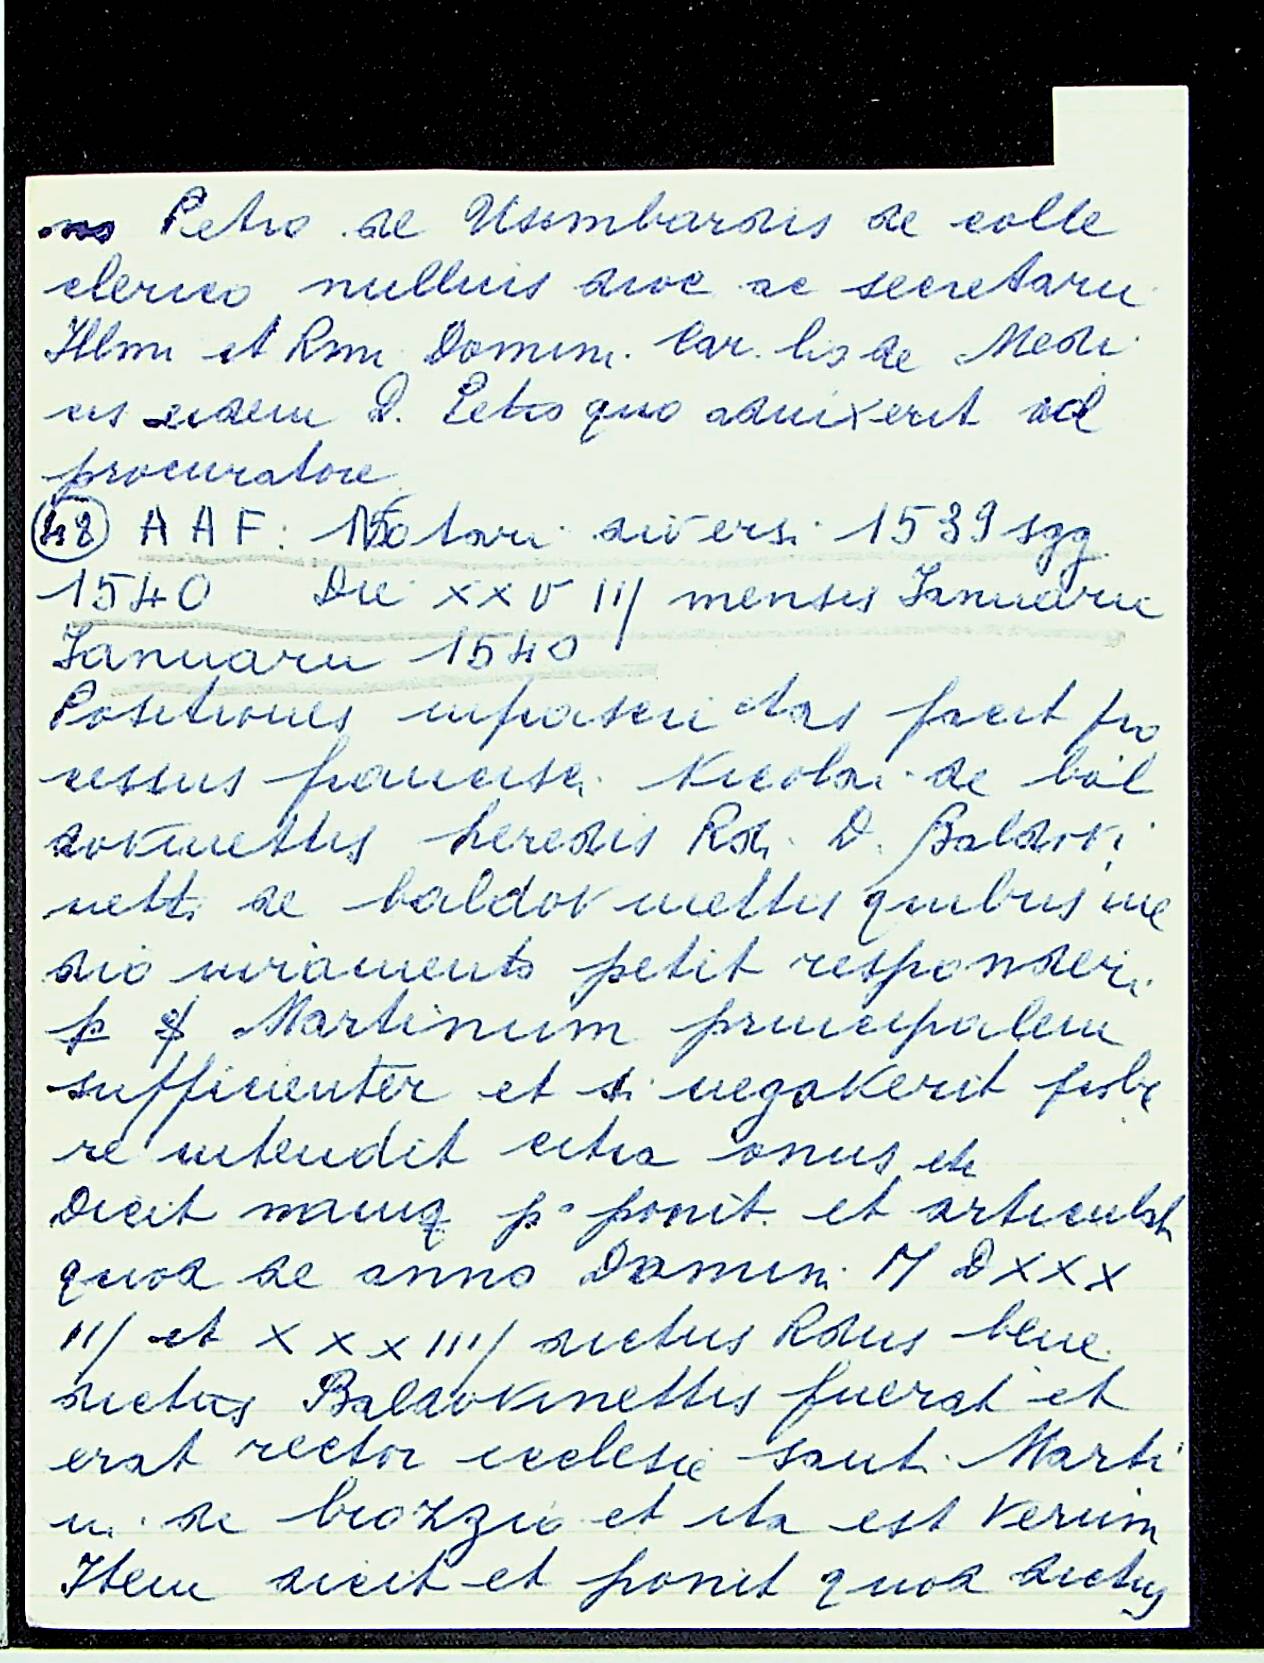 Petro de Usimbardis de colle
clerico nullius dioc ac secretarii
Illmi et Rmi Domini. Car. lis de Medi
cis eidem D. Petro quo aduixerit
procuratore
(48) A A F: Notari diversi 1539 sgg.
1540 Die XXVIII mensis Januarii
Januarii 1540
Positiones infrascriptas facit pro
cessus francisci Nicolai de bal
dovinettis heredis Rdi. D. Baldovi
netti de baldovinettis quibus me
dio iuramento petit responderi
p Martinum principalem
sufficienter et si negaverit proba
re intendit citra onus etc
Dicit namq p° ponit et articulat
quod de anno Domini M D X X X
III et X X X IIII dictus Rdus bene
dictus Baldovinettis fuerat et
erat rector ecclesie santi Marti
ni de brozzio et ita est Verum
Item dicit et ponit quod dictus